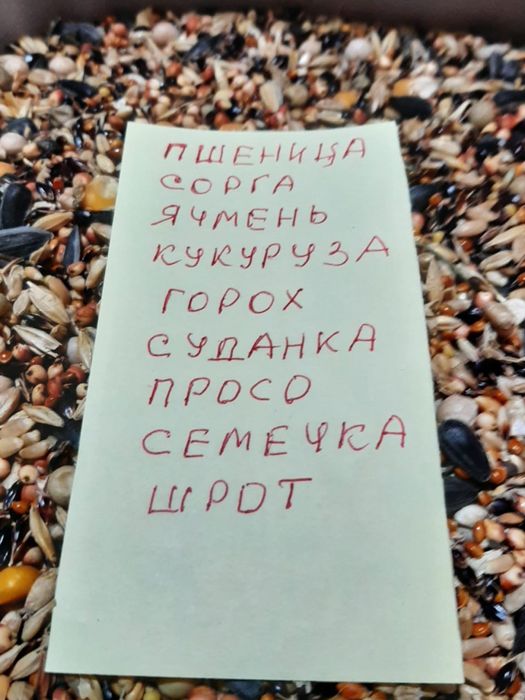 ПШЕНИЦА
СОРГА
ЯЧМЕНЬ
КУКУРУЗА
ГОРОХ
СУДАНКА
ПРОСО
СЕМЕЧКА
ШРОТ